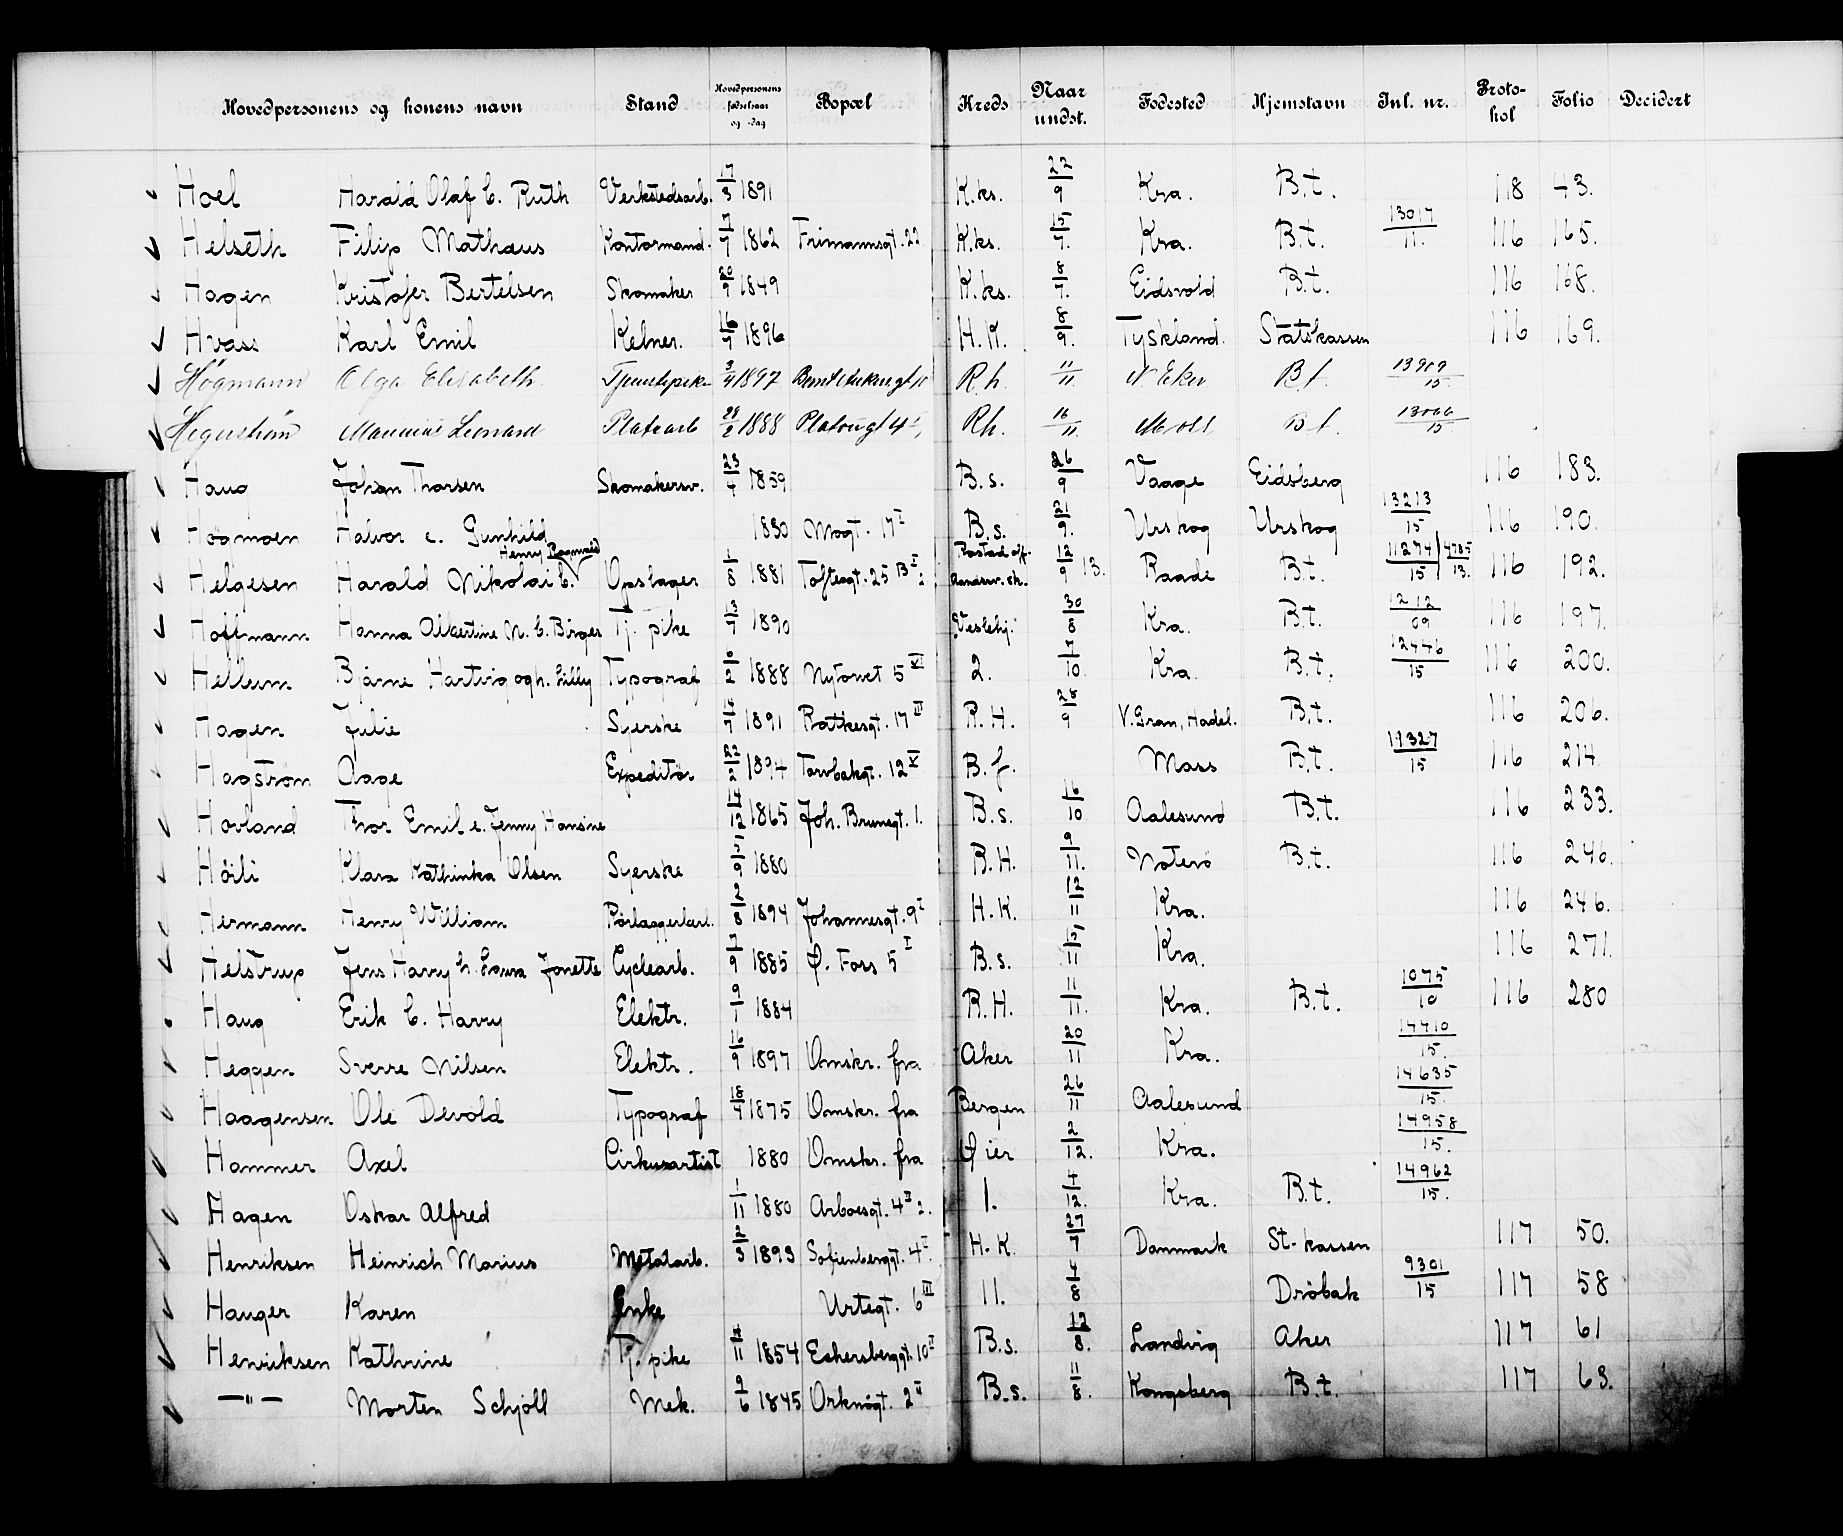 Hovedpersonens og konens navn Stand Hovedpersonens fødselsaar og -dag Bopæl Kreds Naar undst. Fødested Hjemstavn Inl. nr. Protokol Folio Decidert
Hoel Harald Olaf C. Ruth Verkstedsarb. 17/3 1891 K.ks. 22/9 Kra. B.t. 118 43.
Helseth Filip Mathæus Kontormand. 7/7 1862 Frimannsgt. 22 K.ks. 15/7. Kra. B.t. 13017/11. 116 165.
Hagen Kristofer Bertelsen Skomaker 20/9 1849 K.ks. 8/7. Eidsvold B.t. 116 168.
Hvass Karl Emil Kelner. 16/7 1896 H.K. 8/9. Tyskland. Statskassen 116 169.
Högmann Olga Elisabeth Tjenestepike 3/4 1897 R.h. 11/11. N Eker B.t. 13909/15.
Leonard Platearb 1888 Platougt 4 I, R.h. 16/11. B.t. 13066/15.
Haug Johan Thorsen Skomakersv. 23/4 1859 B.s. 26/9 Vaage Eidsberg 116 183.
Hogmoen Halvor c. Gunhild 1830 Mogt. 17 I B.s. 21/9. Urskog Urskog 13213/15 116 190.
Helgesen Harald Nikolai C. Henry Ragnvald Opslager 1/8 1881 Toftesgt. 25 B I 12/9 13. Raade B.t. 11274/15 4785/13. 116 192.
Hoffmann Hanna Albertine N. C. Birger Tj. pike 13/7 1890 Veslehj. 30/8 Kra. B.t. 1212/09 116 197.
Hellum Bjarne Hartvig ogh. Lilly Typograf 6/2 1888 Nytorvet 5 VI 2. 7/10 Kra. B.t. 12446/15 116 200.
Hagen Julie Syerske 14/7 1891 Ratkesgt. 17 III R.H. 28/9 V. Gran, Hadel. B.t. 116 206.
Hagstrøm Aage Expeditør 22/2 1894 Torvbakgt. 12 V B.f. Moss B.t. 11327/15 116 214.
Hovland Thor Emil e. Jenny Hansine 14/12 1865 Joh. Brunsgt. 1. B.s. 16/10 Aalesund B.t. 116 233.
Höili Klara Kathinka Olsen Syerske 5/9 1880 R.H. 9/11. Noterö B.t. 116 246.
Hermann Henry William 2/8 1894 Johannesgt. 9 I H.K. 12/11 Kra. 116 246.
Helstrup Jens Harry h. Laura Jonette Cyclearb. 7/9 1885 Ø. Foss 5 I B.s. 15/11 Kra. 116 271.
Haug Erik C. Harry Elektr. 9/1 1884 R.H. 11/11. Kra. B.t. 1075/10 116 280
Heggen Sverre Nilsen Elektr. 16/9 1897 Omskr. fra Aker 20/11 Kra. 14410/15.
Haagensen Ole Devold Typograf 18/4 1875 Omskr. fra Bergen 26/11 Aalesund 14635/15.
Hammer Axel Cirkusartist 1880 Omskr. fra Øier 2/12. Kra. 14958/15.
Hagen Oskar Alfred 1/11 1880 Arboesgt. 4 II 2. 1. 4/12. Kra. B.t. 14962/15.
Henriksen Heinrich Marius Metalarb. 2/3 1893 Sofienberggt. 4 I H.K. 27/7 Danmark St-kassen 117 50.
Hauger Karen Enke Urtegt. 6 III 11. 4/8 Drøbak 9301/15 117 58
Henriksen Kathrine Tj. pike 4/11 1854 Eckersberggt. 10 I B.s. 12/8. Landvig Aker 117 61
—"— Morten Schjöll Mek. 9/6 1845 Orknögt. 2 II B.s. 11/8. Kongsberg B.t. 117 63.